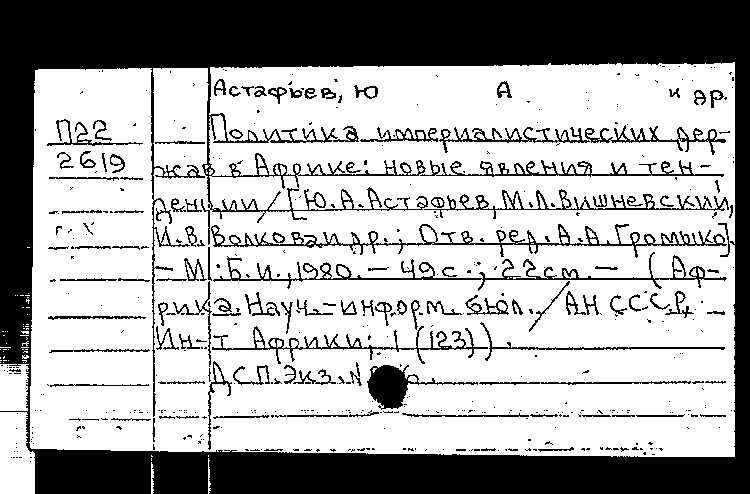 Астафьев, Ю А и др.
П22
2619
Политика империалистических дер-
жав в Африке: новые явления и тен-
денции / [Ю.А.Астафьев, М.Л.Вишневский,
И.В.Волкова и др.; Отв. ред. А.А.Громыко].
– М.: Б.и., 1980. – 49 с.; 22 см. – (Аф-
рика. Науч.-информ. бюл. / АН СССР,
Ин-т Африки; 1 (123)).
ДСП. Экз. №